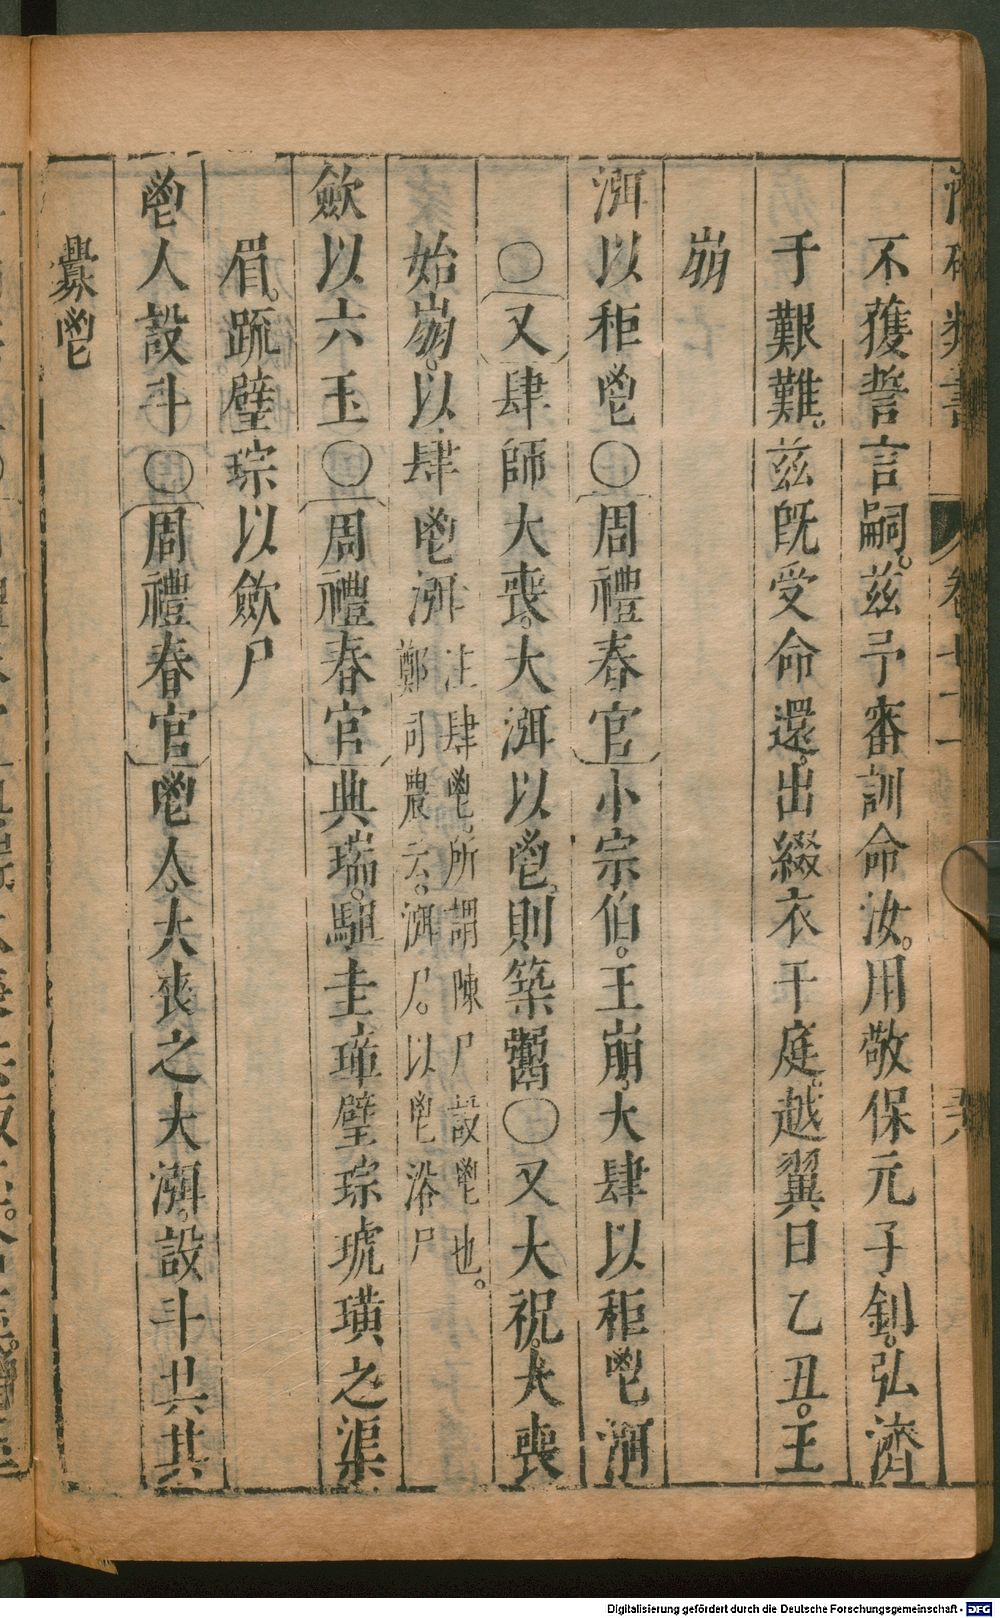 不獲誓言嗣。茲予審訓命汝。用敬保元子釗。弘濟
于艱難。茲旣受命還。出綴衣于庭。越翼日乙丑。王
崩
渳以秬鬯○周禮春官小宗伯。王崩。大肆以秬鬯渳
○又肆師大喪。大渳以鬯。則築鬻○又大祝。大喪
始崩。以肆鬯渳
注肆鬯。所謂陳尸設鬯也。
鄭司農云。渳尸。以鬯浴尸
歛以六玉○周禮春官典瑞。駔圭璋璧琮琥璜之渠
眉。疏璧琮以歛尸
鬯人設斗○周禮春官鬯人。大喪之大渳。設斗共其
釁鬯
卷七十一
Digitalisierung gefördert durch die Deutsche Forschungsgemeinschaft - DFG